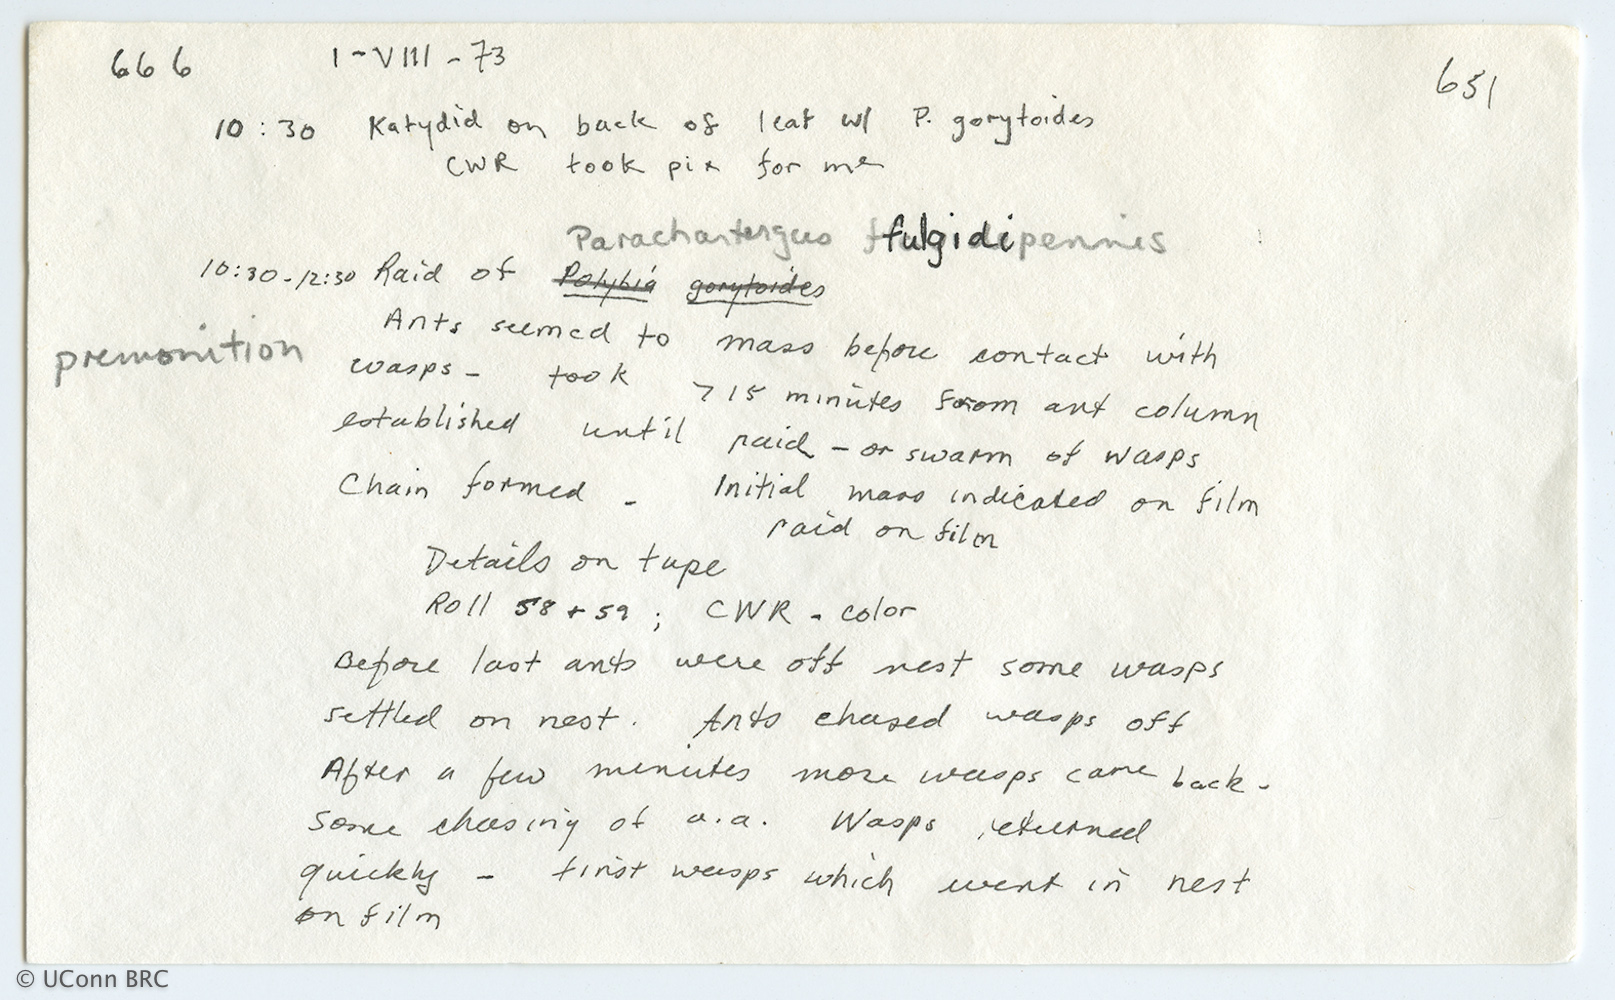 666 1-VIII-73 651
10:30 Katydid on back of leaf w/ P. gorytoides
CWR took pix for me
Parachartergus fulgidipennis
10:30-12:30 Raid of Polybia gorytoides
Ants seemed to mass before contact with
premonition
wasps - took >15 minutes from ant column
established until raid - or swarm of wasps
Chain formed - Initial mass indicated on film
raid on film
Details on tape
Roll 58 + 59 ; CWR - color
Before last ants were off nest some wasps
settled on nest. Ants chased wasps off
After a few minutes more wasps came back -
some chasing of a.a. Wasps returned
quickly - first wasps which went in nest
on film
© UConn BRC